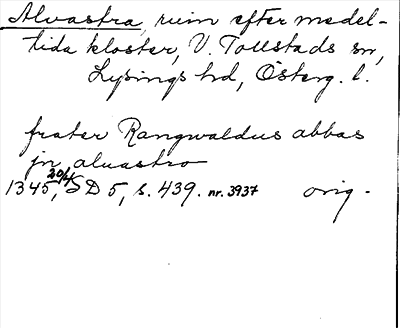 Alvastra, ruin efter medel-
tida kloster, V. Tollstads sn,
Lysings hd, Österg. l.
frater Rangwaldus abbas
jn alvastro
1345, 20/4 SD 5, s. 439. nr. 3937 orig.